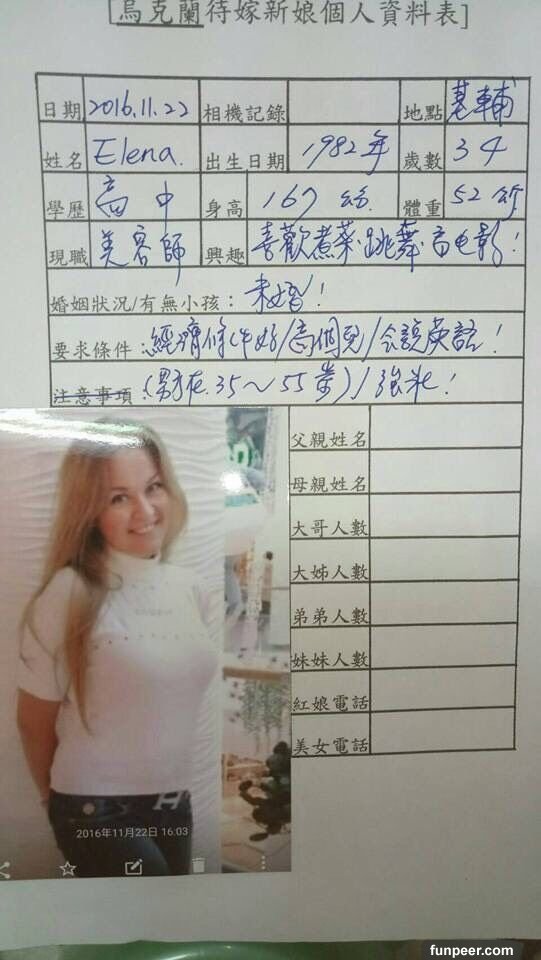 [烏克蘭待嫁新娘個人資料表]
日期 2016.11.22 相機記錄 地點 基輔
姓名 Elena. 出生日期 1982年 歲數 34
學歷 高中 身高 167公分 體重 52公斤
現職 美容師 興趣 喜歡煮菜.跳舞.看电影!
婚姻狀況/有無小孩: 未婚!
要求條件: 經濟條件好/高個兒/会說英語!
注意事項: (男方在35~55歲)/強壯!
父親姓名
母親姓名
大哥人數
大姊人數
弟弟人數
妹妹人數
紅娘電話
美女電話
2016年11月22日 16:03
funpeer.com